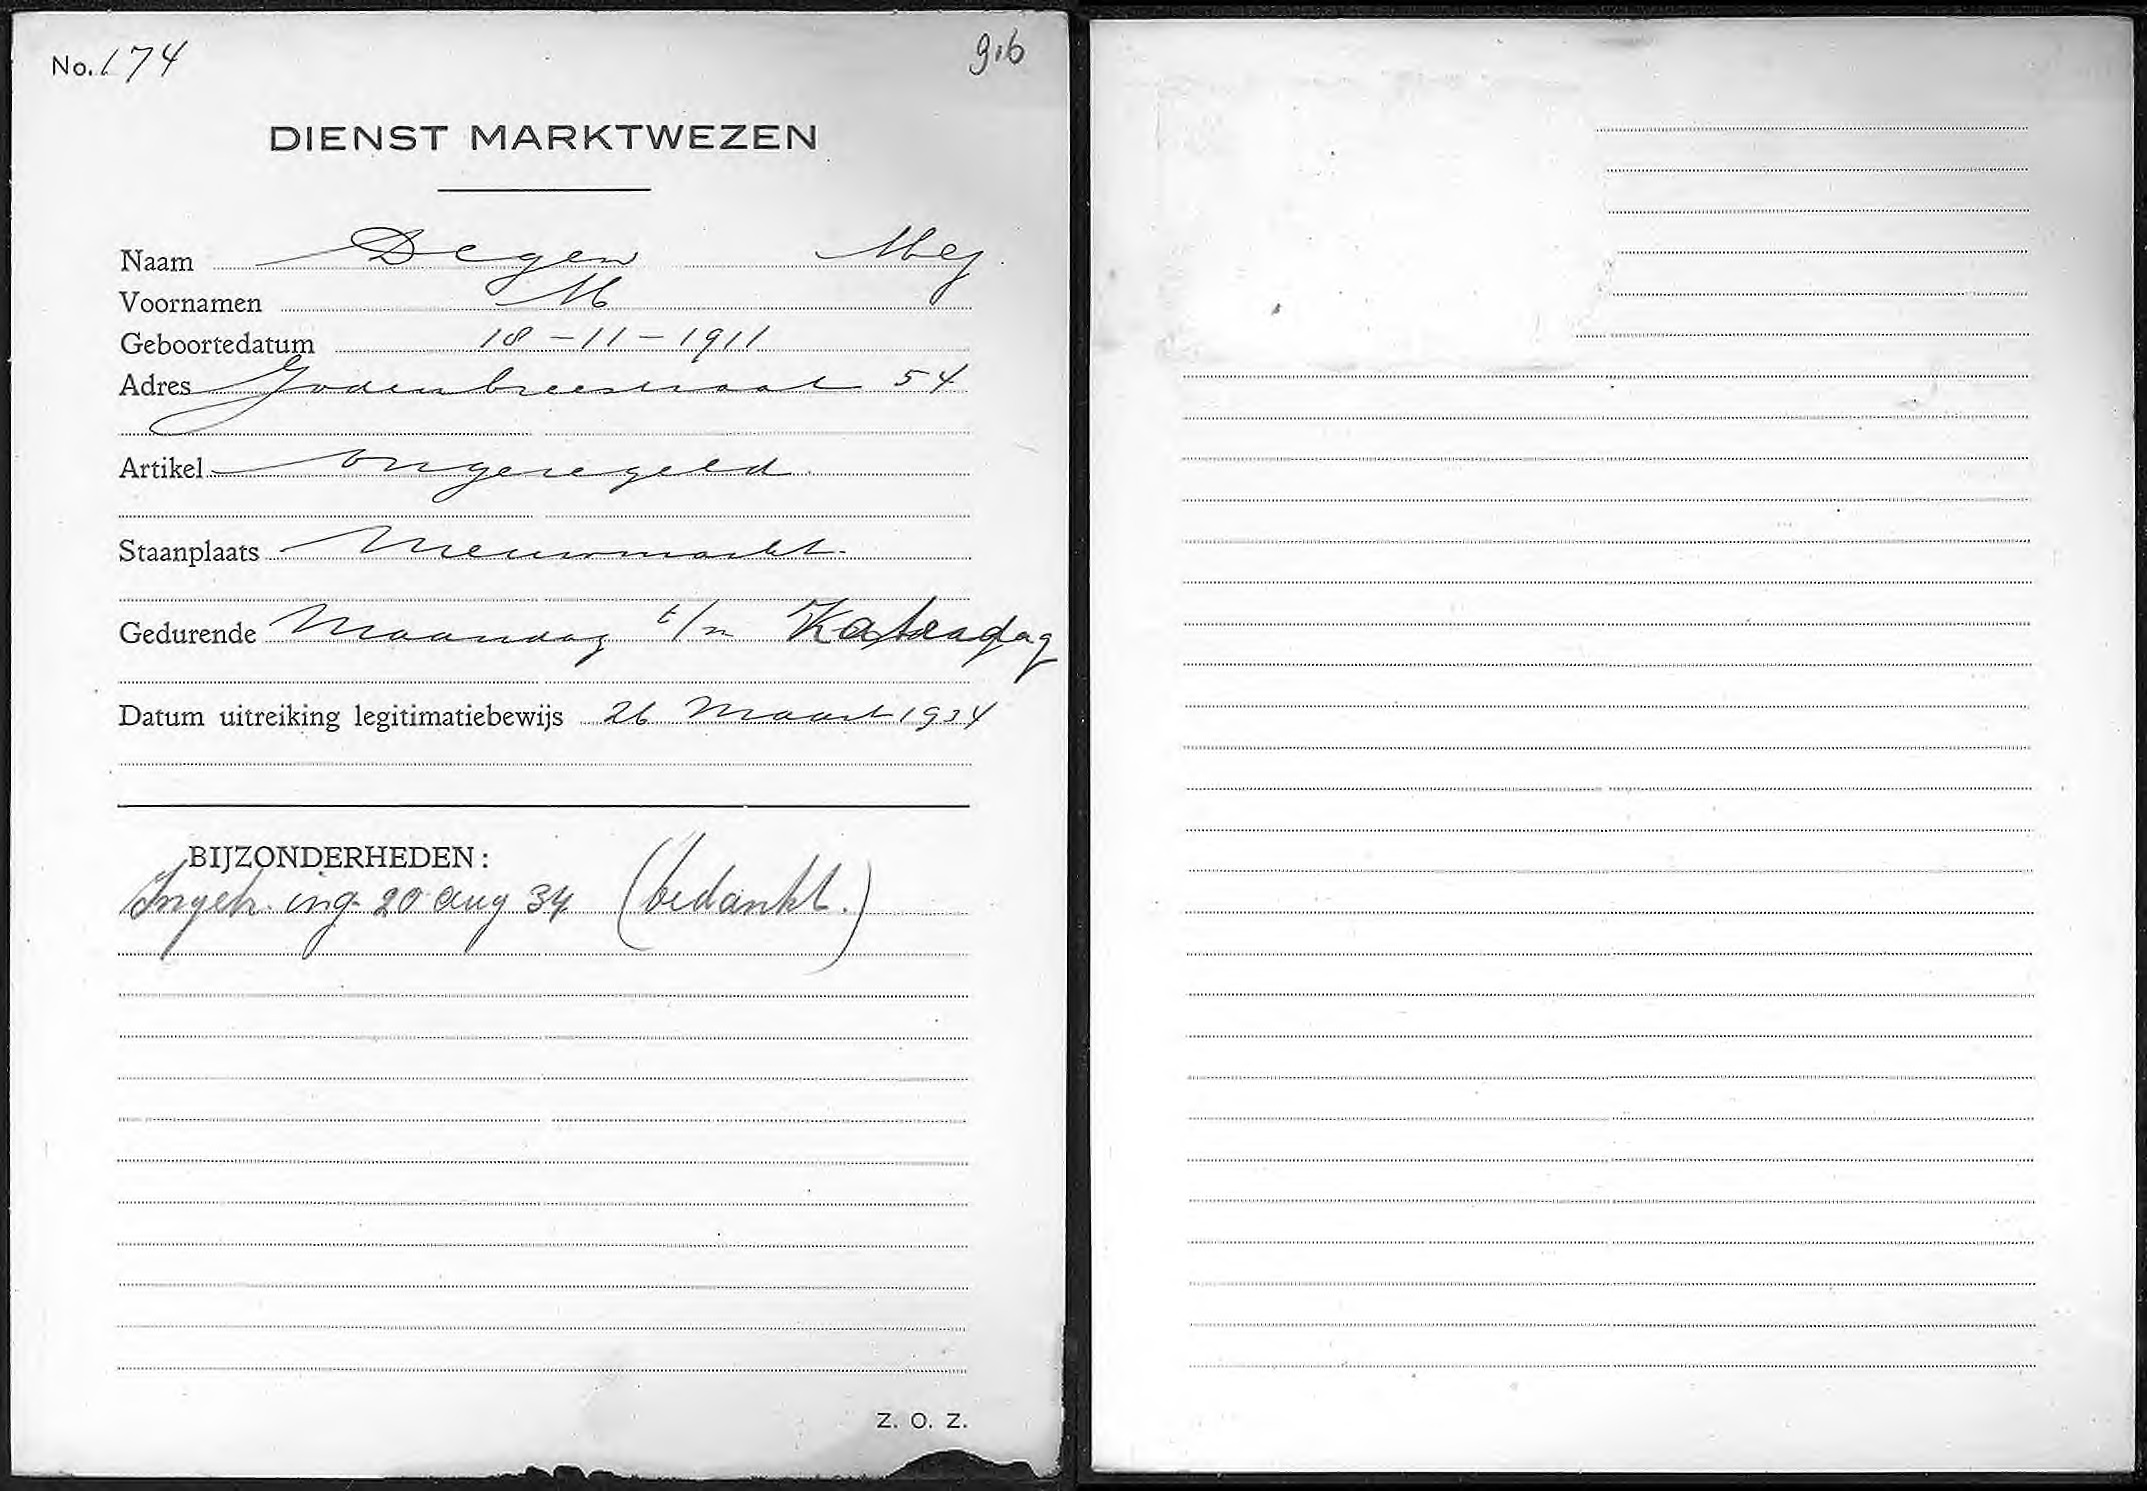 No. 174
9.6
DIENST MARKTWEZEN
Naam Degen Mej
Voornamen M
Geboortedatum 18-11-1911
Adres Jodenbreestraat 54
Artikel ongeregeld
Staanplaats Nieuwmarkt.
Gedurende Maandag t/m
Datum uitreiking legitimatiebewijs 26 Maart 1934
BIJZONDERHEDEN:
Ingetr. ing. 20 aug 34 (bedankt.)
Z. O. Z.